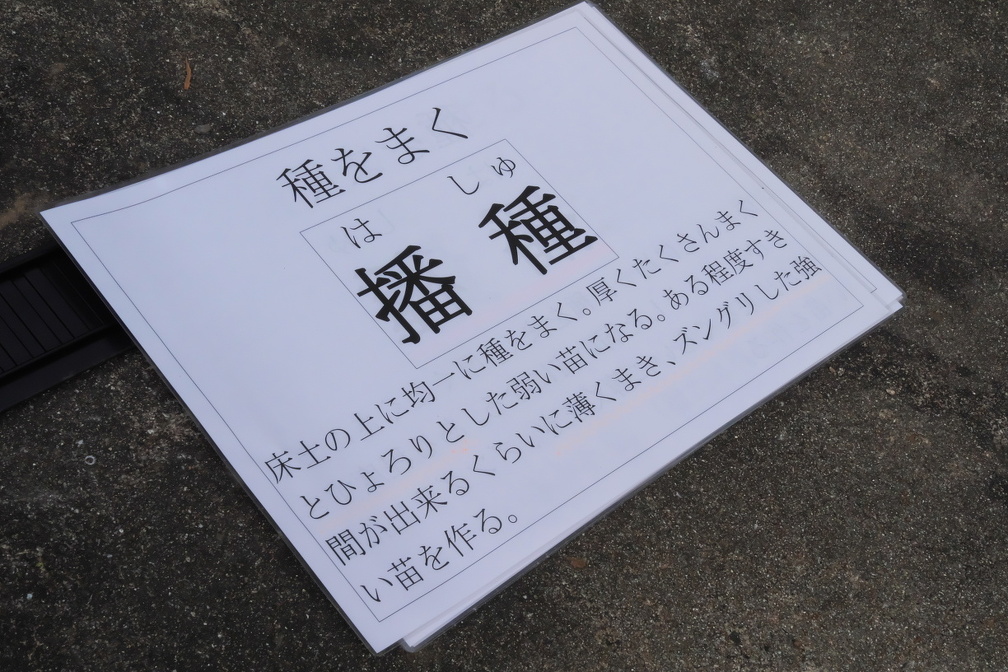 種をまく
は しゅ
播 種
床士の上に均一に種をまく。厚くたくさんまく
とひょろりとした弱い苗になる。ある程度すき
間が出来るくらいに薄くまき、ズングリした強
い苗を作る。